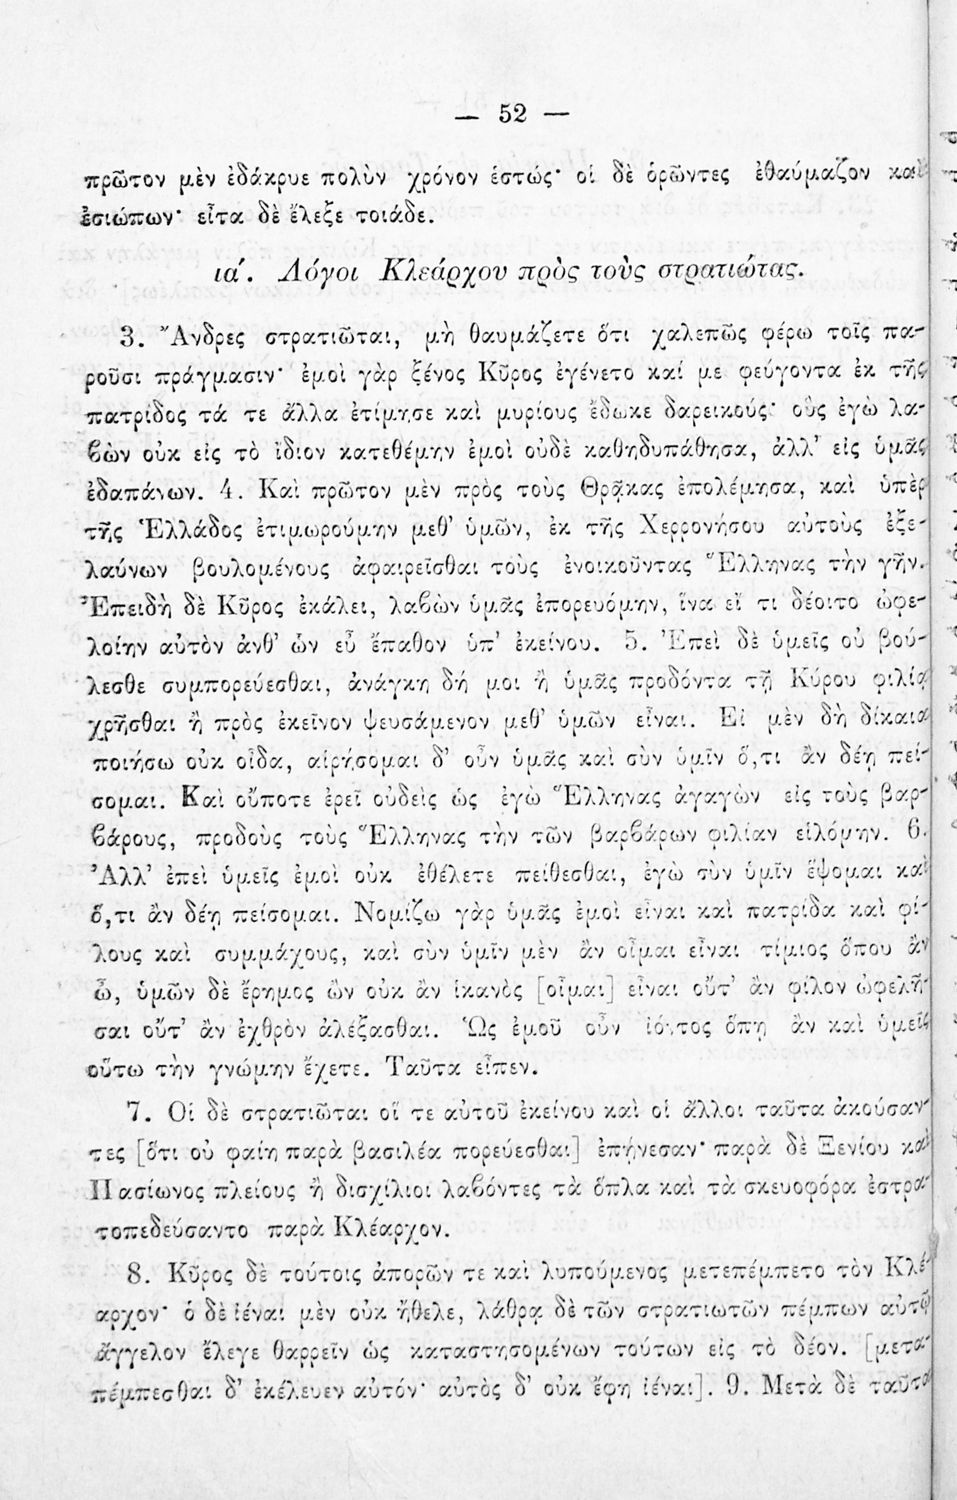 — 52 —
πρῶτον μὲν ἐδάκρυε πολὺν χρόνον ἑστώς· οἱ δὲ ὁρῶντες ἐθαύμαζον καὶ
ἐσιώπων· εἶτα δὲ ἔλεξε τοιάδε.
ια΄. Λόγοι Κλεάρχου πρὸς τοὺς στρατιώτας.
3. Ἄνδρες στρατιῶται, μὴ θαυμάζετε ὅτι χαλεπῶς φέρω τοῖς πα-
ροῦσι πράγμασιν· ἐμοὶ γὰρ ξένος Κῦρος ἐγένετο καί με φεύγοντα ἐκ τῆς
πατρίδος τά τε ἄλλα ἐτίμησε καὶ μυρίους ἔδωκε δαρεικούς· οὓς ἐγὼ λα-
βὼν οὐκ εἰς τὸ ἴδιον κατεθέμην ἐμοὶ οὐδὲ καθηδυπάθησα, ἀλλ' εἰς ὑμᾶς
ἐδαπάνων. 4. Καὶ πρῶτον μὲν πρὸς τοὺς Θρᾷκας ἐπολέμησα, καὶ ὑπὲρ
τῆς Ἑλλάδος ἐτιμωρούμην μεθ' ὑμῶν, ἐκ τῆς Χερρονήσου αὐτοὺς ἐξε-
λαύνων βουλομένους ἀφαιρεῖσθαι τοὺς ἐνοικοῦντας Ἕλληνας τὴν γῆν.
Ἐπειδὴ δὲ Κῦρος ἐκάλει, λαβὼν ὑμᾶς ἐπορευόμην, ἵνα εἴ τι δέοιτο ὠφε-
λοίην αὐτὸν ἀνθ' ὧν εὖ ἔπαθον ὑπ' ἐκείνου. 5. Ἐπεὶ δὲ ὑμεῖς οὐ βού-
λεσθε συμπορεύεσθαι, ἀνάγκη δή μοι ἢ ὑμᾶς προδόντα τῇ Κύρου φιλίᾳ
χρῆσθαι ἢ πρὸς ἐκεῖνον ψευσάμενον μεθ' ὑμῶν εἶναι. Εἰ μὲν δὴ δίκαια
ποιήσω οὐκ οἶδα, αἱρήσομαι δ' οὖν ὑμᾶς καὶ σὺν ὑμῖν ὅ,τι ἂν δέῃ πεί-
σομαι. Καὶ οὔποτε ἐρεῖ οὐδεὶς ὡς ἐγὼ Ἕλληνας ἀγαγὼν εἰς τοὺς βαρ-
βάρους, προδοὺς τοὺς Ἕλληνας τὴν τῶν βαρβάρων φιλίαν εἱλόμην. 6.
Ἀλλ' ἐπεὶ ὑμεῖς ἐμοὶ οὐκ ἐθέλετε πείθεσθαι, ἐγὼ σὺν ὑμῖν ἕψομαι καὶ
ὅ,τι ἂν δέῃ πείσομαι. Νομίζω γὰρ ὑμᾶς ἐμοὶ εἶναι καὶ πατρίδα καὶ φί-
λους καὶ συμμάχους, καὶ σὺν ὑμῖν μὲν ἂν οἶμαι εἶναι τίμιος ὅπου ἂν
ὦ, ὑμῶν δὲ ἔρημος ὢν οὐκ ἂν ἱκανὸς [οἶμαι] εἶναι οὔτ' ἂν φίλον ὠφελῆ-
σαι οὔτ' ἂν ἐχθρὸν ἀλέξασθαι. Ὡς ἐμοῦ οὖν ἰόντος ὅπῃ ἂν καὶ ὑμεῖς
οὕτω τὴν γνώμην ἔχετε. Ταῦτα εἶπεν.
7. Οἱ δὲ στρατιῶται οἵ τε αὐτοῦ ἐκείνου καὶ οἱ ἄλλοι ταῦτα ἀκούσαν-
τες [ὅτι οὐ φαίη παρὰ βασιλέα πορεύεσθαι] ἐπῄνεσαν· παρὰ δὲ Ξενίου καὶ
Πασίωνος πλείους ἢ δισχίλιοι λαβόντες τὰ ὅπλα καὶ τὰ σκευοφόρα ἐστρα-
τοπεδεύσαντο παρὰ Κλέαρχον.
8. Κῦρος δὲ τούτοις ἀπορῶν τε καὶ λυπούμενος μετεπέμπετο τὸν Κλέ-
αρχον· ὁ δὲ ἰέναι μὲν οὐκ ἤθελε, λάθρᾳ δὲ τῶν στρατιωτῶν πέμπων αὐτῷ
ἄγγελον ἔλεγε θαρρεῖν ὡς καταστησομένων τούτων εἰς τὸ δέον. [μετα-
πέμπεσθαι δ' ἐκέλευεν αὐτόν· αὐτὸς δ' οὐκ ἔφη ἰέναι]. 9. Μετὰ δὲ ταῦτα